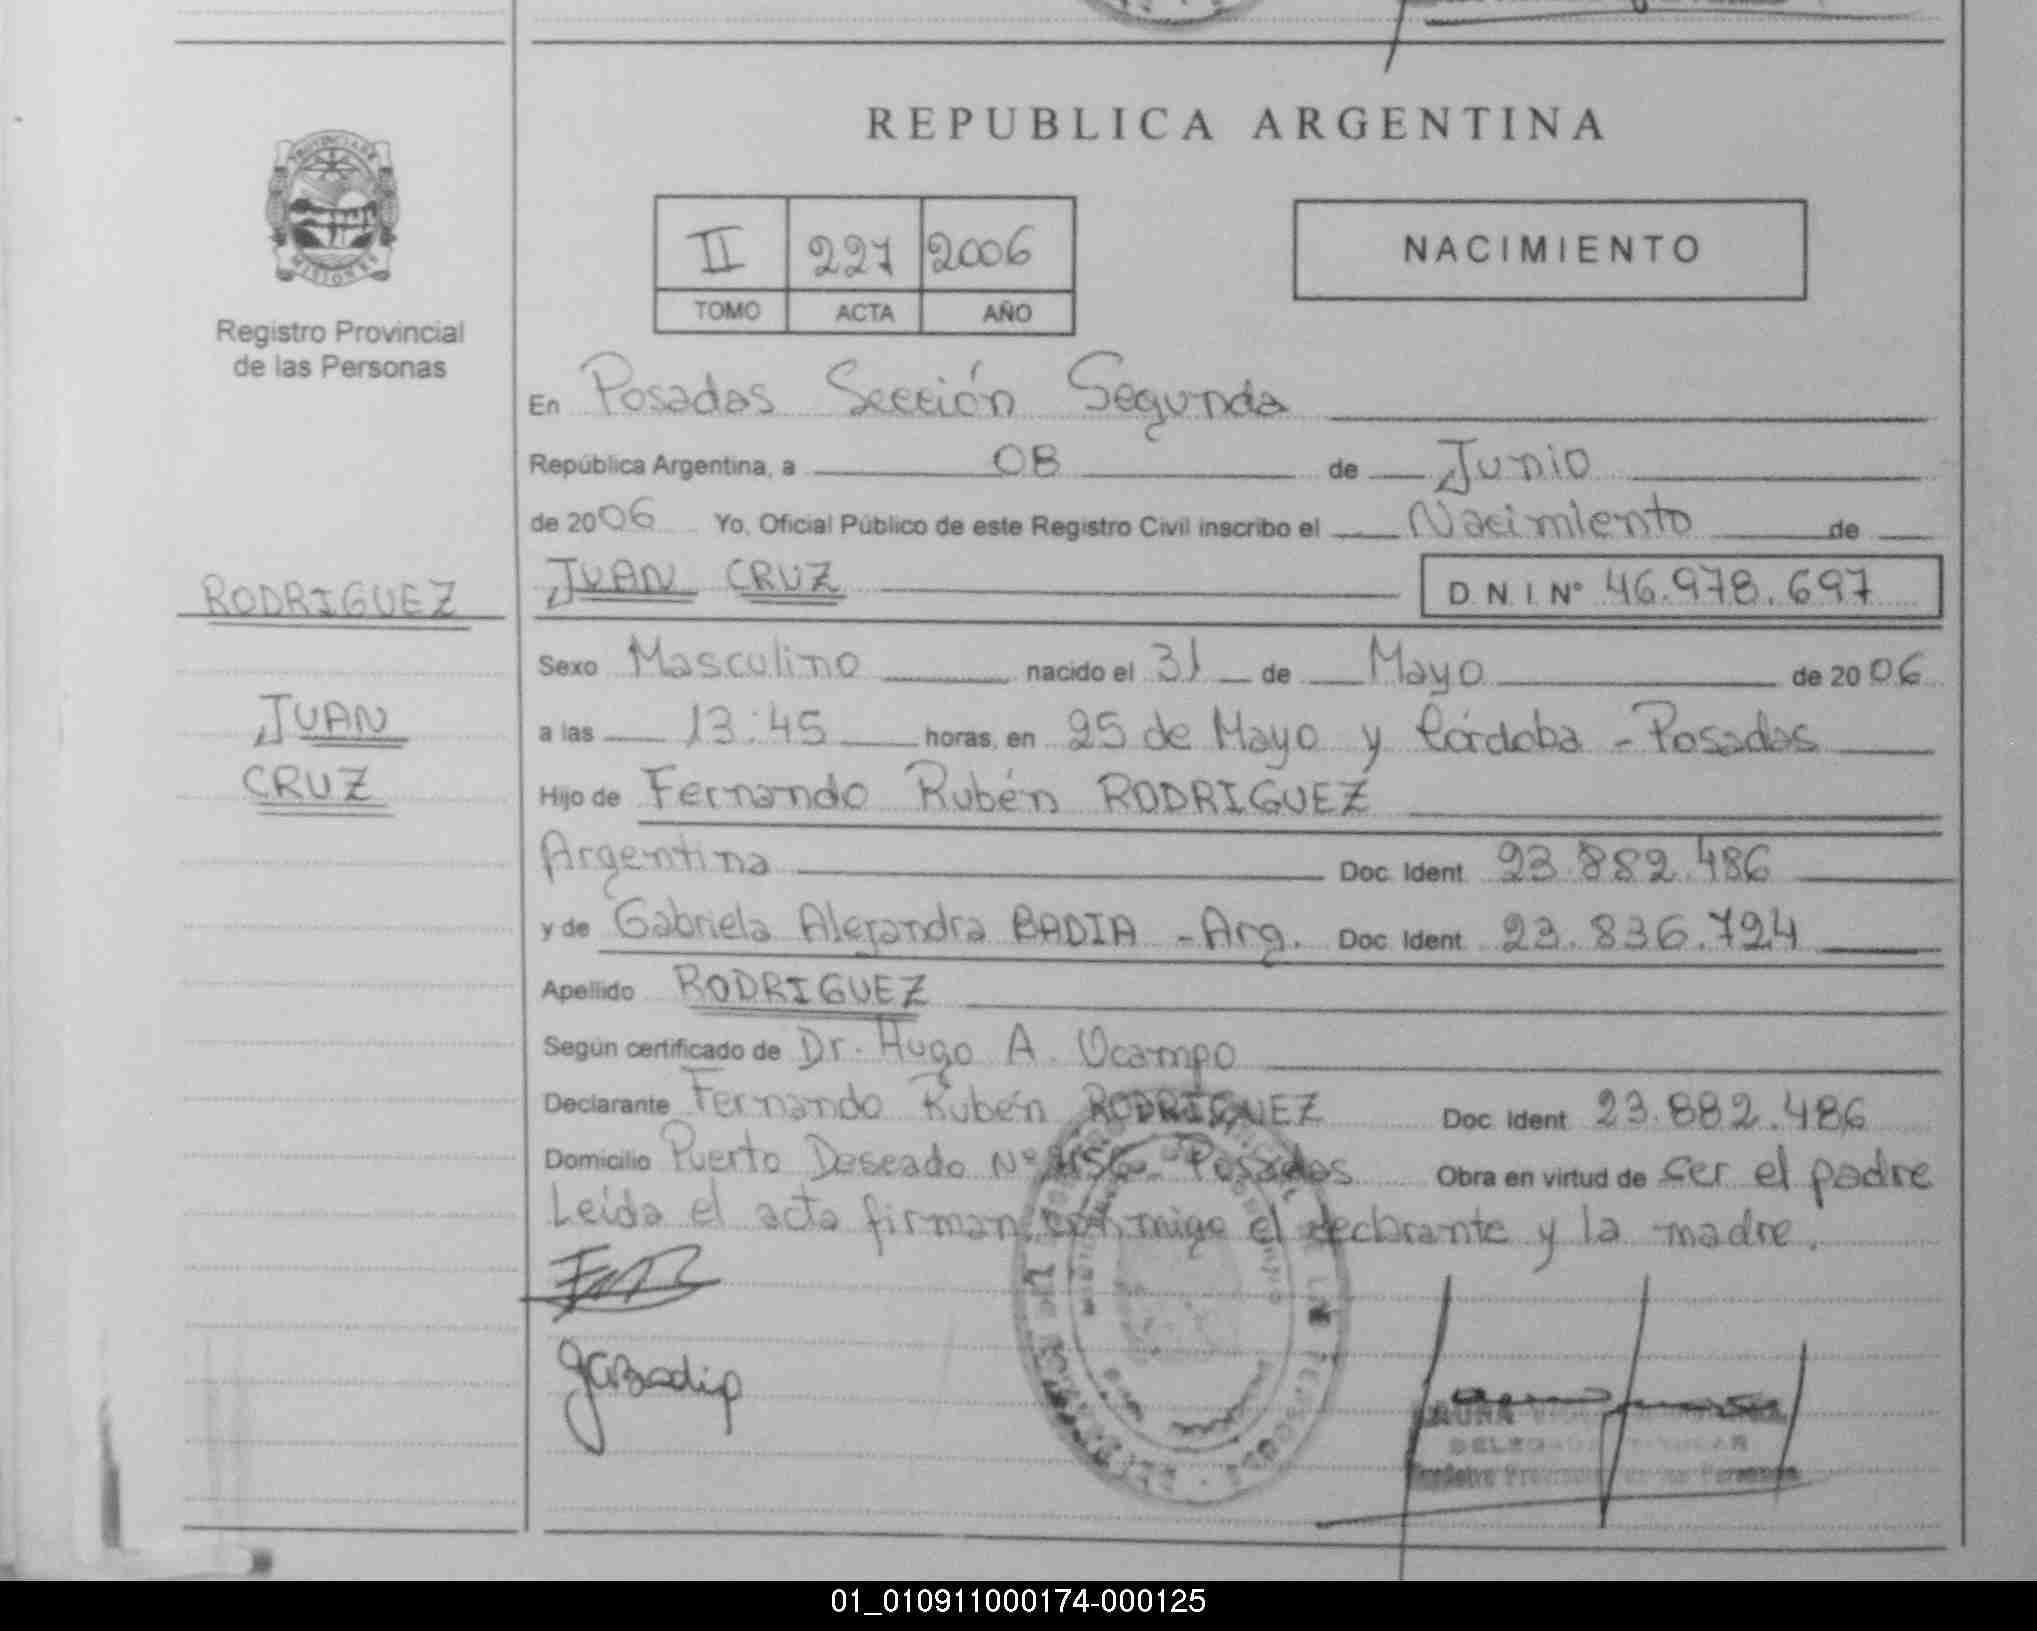 REPUBLICA ARGENTINA
PROVINCIA DE
MISIONES
Registro Provincial
de las Personas
II 227 2006
TOMO ACTA AÑO
NACIMIENTO
En Posadas Sección Segunda
República Argentina, a 08 de Junio
de 2006 Yo, Oficial Público de este Registro Civil inscribo el Nacimiento de
RODRIGUEZ
JUAN
CRUZ
JUAN CRUZ D.N.I. Nº 46.978.697
Sexo Masculino nacido el 31 de Mayo de 2006
a las 13:45 horas, en 25 de Mayo y Córdoba - Posadas
Hijo de Fernando Rubén RODRIGUEZ
Argentina Doc. Ident. 23.882.486
y de Gabriela Alejandra BADIA - Arg. Doc. Ident. 23.836.724
Apellido RODRIGUEZ
Según certificado de Dr. Hugo A. Ocampo
Declarante Fernando Rubén RODRIGUEZ Doc. Ident. 23.882.486
Domicilio Puerto Deseado Nº Posadas Obra en virtud de ser el padre
Leída el acta firman conmigo el declarante y la madre.
gabadia
Registro Provincial de las Personas
01_010911000174-000125